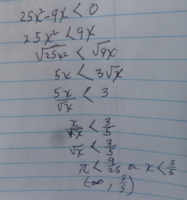 25x² - 9x < 0
25x² < 9x
√25x² < √9x
5x < 3√x
5x/√x < 3
x/√x < 3/5
√x < 3/5
x < 9/25 or x < 3/5
(∞, 3/5)